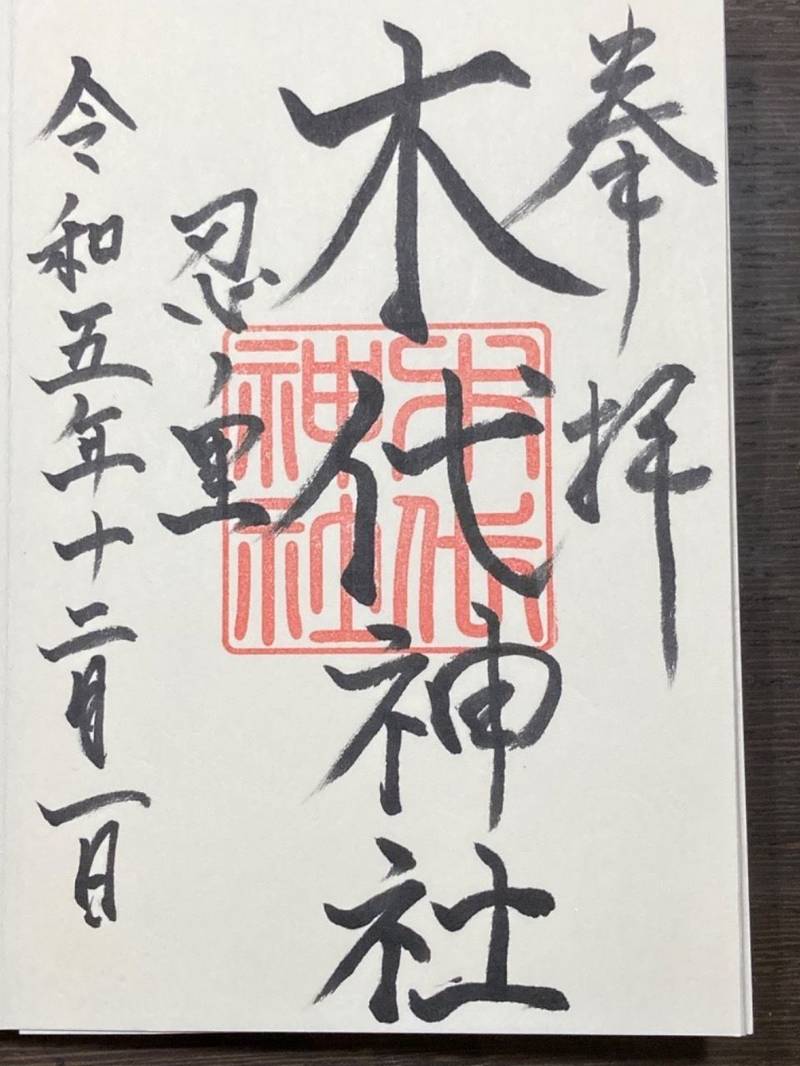 奉拝
木代神社
木代神社
忍里
令和五年十二月一日